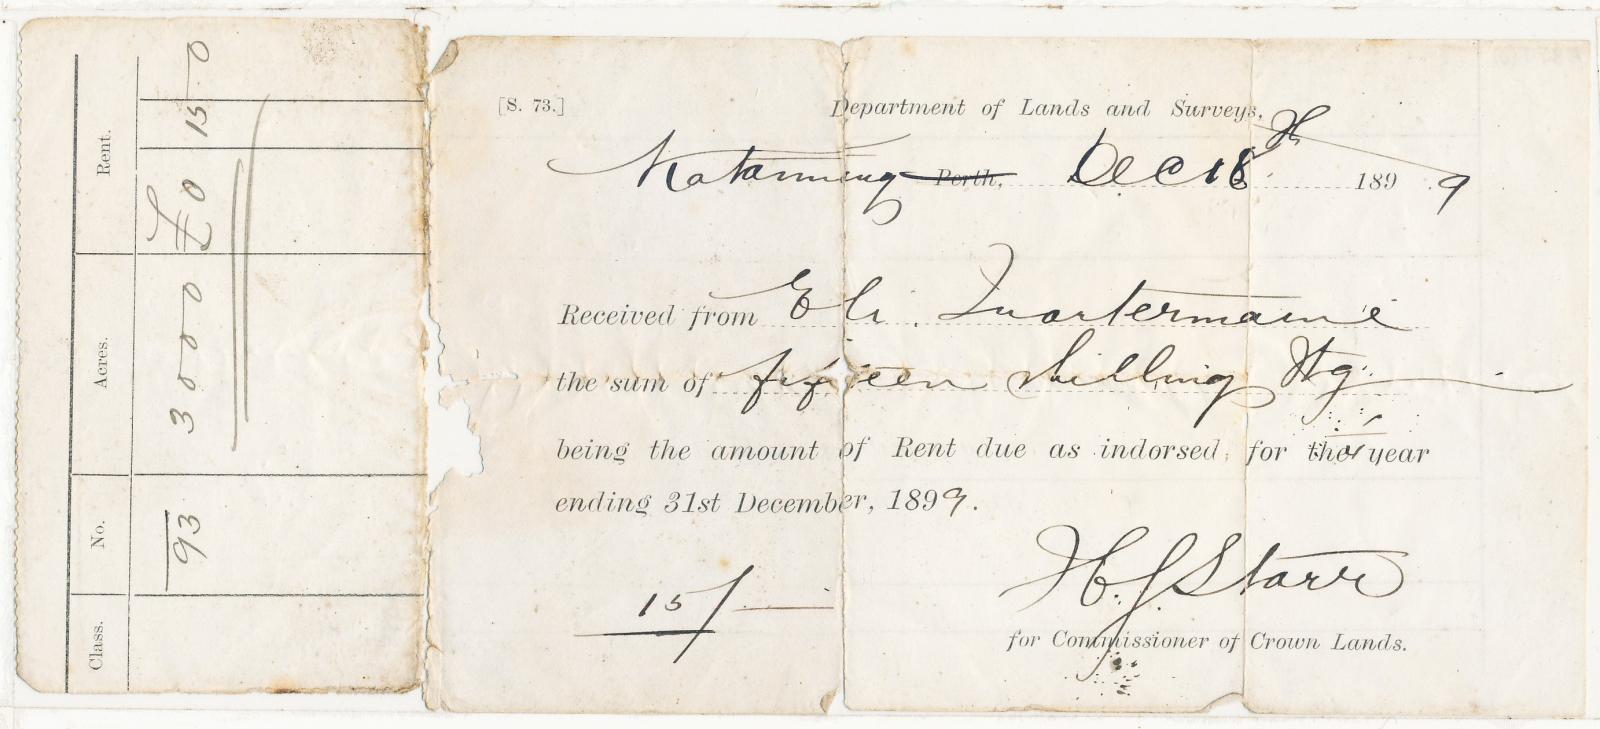 Class. No. Acres. Rent.
93 3000 £0 15 0
[S. 73.] Department of Lands and Surveys,
Katanning Perth, Dec 18th 1899
Received from Eli Quartermaine
the sum of fifteen shilling Stg
being the amount of Rent due as indorsed, for the year
ending 31st December, 1899.
15/-
H. J. Starr
for Commissioner of Crown Lands.